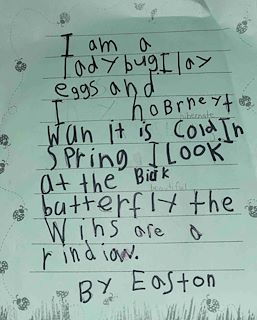 I am a
ladybug I lay
eggs and
I hoBrnext
hibernate
Wan it is Cold In
Spring I Look
at the Black
beautiful
butterfly the
Wihs are a
rindiow.
By Easton